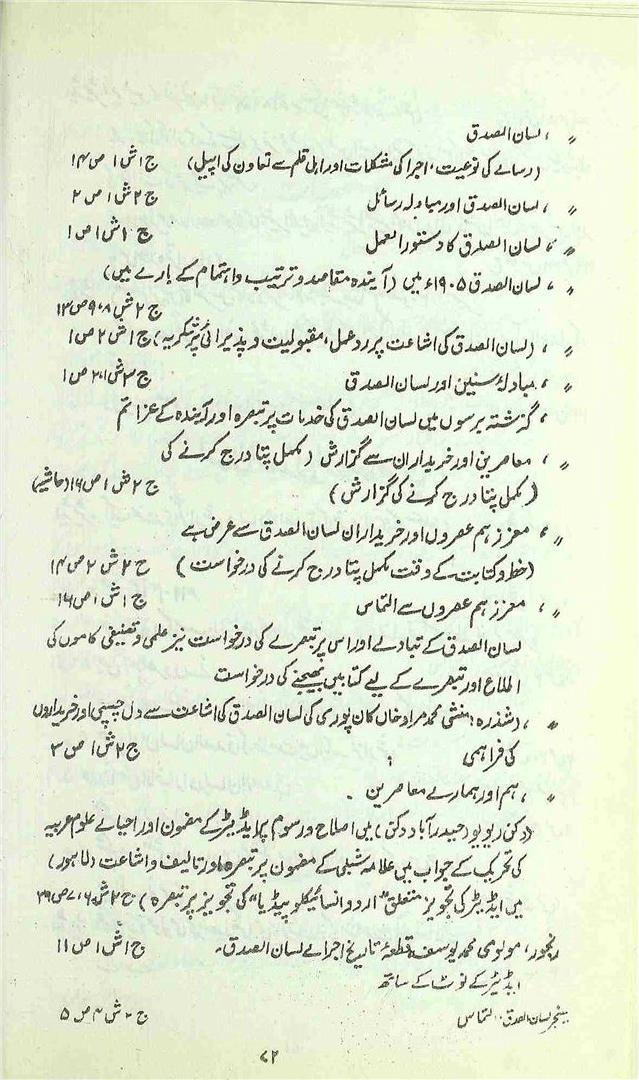 〃 ، لسان الصدق
(رسالے کی نوعیت، اجرا کی مشکلات اور اہل قلم سے تعاون کی اپیل) ج ۱ ش ۱ ص ۱۴
〃 ، لسان الصدق اور مبادلہ رسائل ج ۲ ش ۱ ص ۲
〃 ، لسان الصدق کا دستور العمل ج ۱ ش ۱ ص ۱
〃 ، لسان الصدق ۱۹۰۵ء میں (آیندہ مقاصد و ترتیب و اہتمام کے بارے میں)
ج ۲ ش ۹،۸ ص ۱۳
〃 ، (لسان الصدق کی اشاعت پر رد عمل، مقبولیت و پذیرائی پر شکریہ) ج ۱ ش ۲ ص ۱
〃 ، مبادلہ سنین اور لسان الصدق ج ۳ ش ۲،۱ ص ۱
گزشتہ برسوں میں لسان الصدق کی خدمات پر تبصرہ اور آیندہ کے عزائم
〃 ، معاصرین اور خریداران سے گزارش (مکمل پتا درج کرنے کی
(مکمل پتا درج کرنے کی گزارش) ج ۲ ش ۱ ص ۱۶ (حاشیہ)
〃 ، معزز ہم عصروں اور خریداران لسان الصدق سے عرض ہے
(خط و کتابت کے وقت مکمل پتا درج کرنے کی درخواست) ج ۲ ش ۲ ص ۱۴
〃 ، معزز ہم عصروں سے التماس ج ۱ ش ۱ ص ۱۶
لسان الصدق کے تبادلے اور اس پر تبصرے کی درخواست نیز علمی و تصنیفی کاموں کی
اطلاع اور تبصرے کے لیے کتابیں بھیجنے کی درخواست
〃 ، (شذرہ: منشی محمد مراد خاں کان پوری کی لسان الصدق کی اشاعت سے دل چسپی اور خریداروں
کی فراہمی ج ۲ ش ۱ ص ۳
〃 ، ہم اور ہمارے معاصرین
(دکن ریویو (حیدرآباد دکن) میں اصلاح و رسوم پر ایڈیٹر کے مضمون اور احیائے علوم عربیہ
کی تحریک کے جواب میں علامہ شبلی کے مضمون پر تبصرہ اور تالیف و اشاعت (لاہور)
میں ایڈیٹر کی تجویز متعلق "اردو انسائیکلوپیڈیا" کی تجویز پر تبصرہ) ج ۲ ش ۷،۶ ص ۳۹
رنجور، مولوی محمد یوسف، قطعۂ تاریخ اجرائے لسان الصدق۔ ج ۱ ش ۱ ص ۱۱
ایڈیٹر کے نوٹ کے ساتھ
مینجر لسان الصدق، التماس ج ۲ ش ۴ ص ۵
۷۲